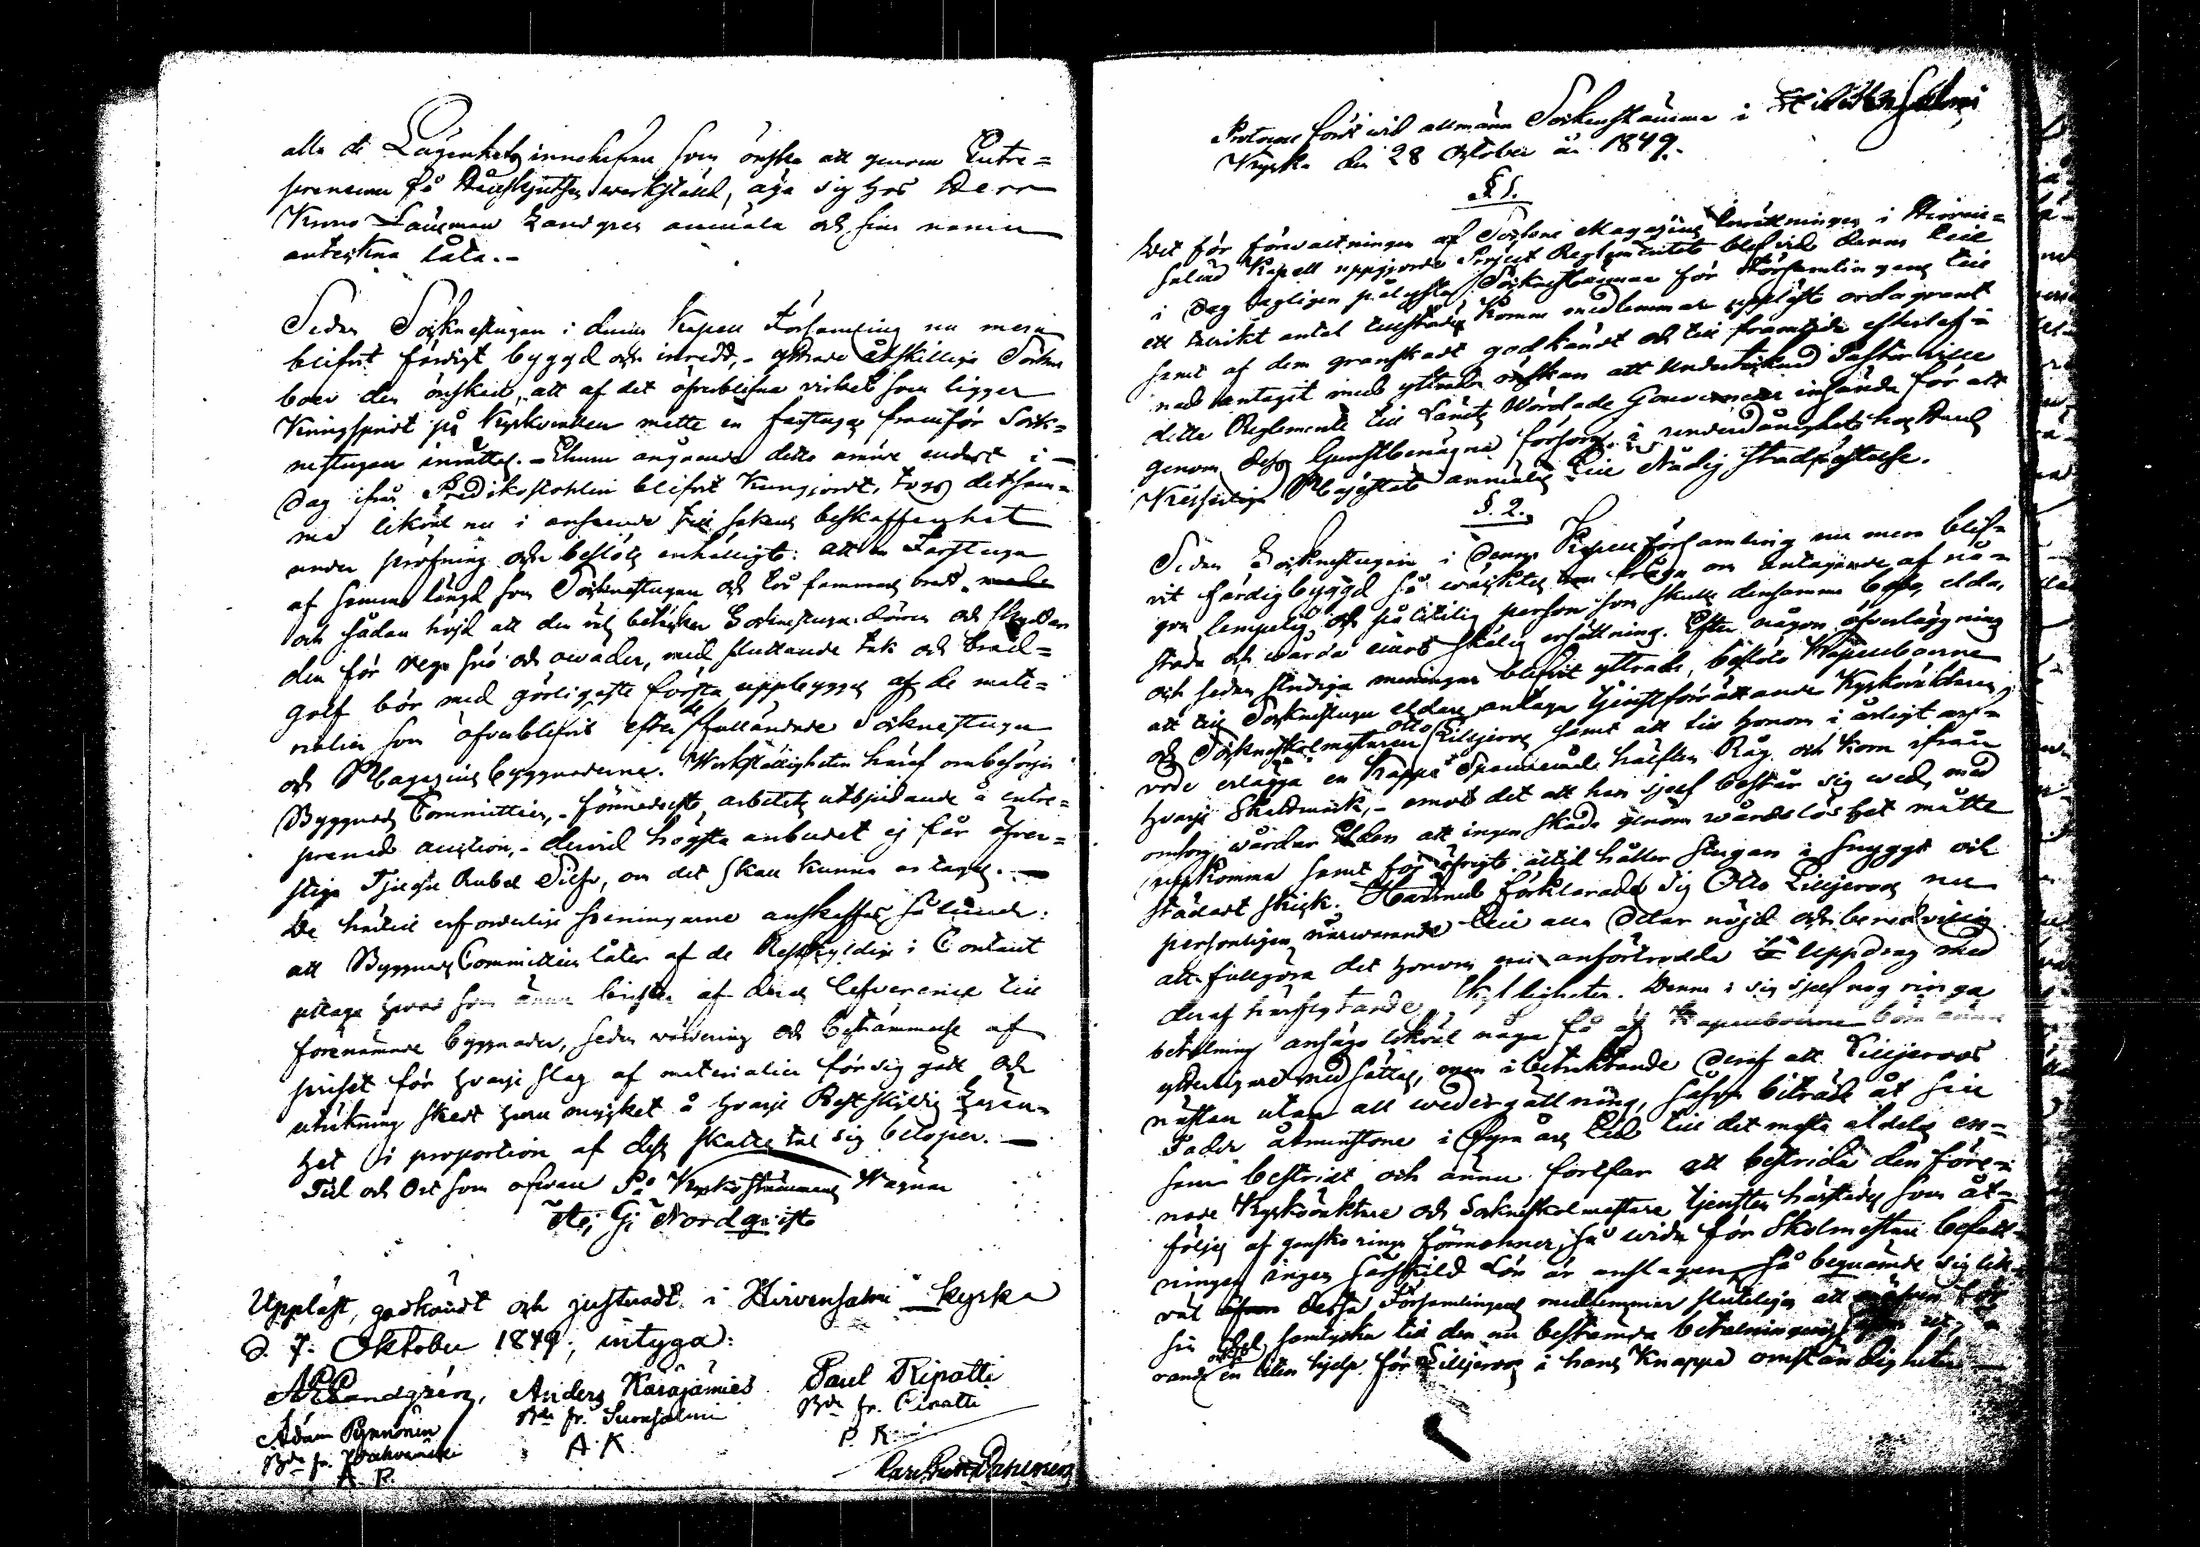 alla de Lägenhets innehafvare som önska att genom Entre=
prenaren få Hållskjutsen werkställd, äga sig hos Herr
Krono Länsman Landgren anmäla och sina namn
anteckna låta.-
Sedan Socknestugan i denna Kapell Församling nu mera
blifvit färdigt byggd och inredd,- yttrade åtskillige Socken
boer den önskan, att af det öfverblifna virket som ligger
Kringspridt på Kyrkbacken måtte en farstuga framför Sock=
nestugan inrättas.- Ehuru angående detta ämne endast i
dag ifrån Predikostolen blifvit Kungjordt, togs detsam=
ma likväl nu i anseende till sakens beskaffenhet
under pröfning och beslöts enhälligt: att en Farstuga
af samma längd som Socknestugan och två famnars bredd
och sådan höjd att den väl betäcker Socknestugu dörren och skyddar
den för regn snö och oväder, med sluttande tak och bräd=
golf bör med görligaste första uppbyggas af de mate=
rialier som öfverblifvit efter de fulländade Socknestugu
och Magazins byggnaderne. Werkställigheten häraf ombesörjer
Byggnads Committeen,- förmedelst arbetets utbjudande å entre=
prenad auction,- dervid högsta anbudet ej får öfver=
stiga Tjugu Rubel Silfver, om det skall kunna antagas.-
De härtill erforderliga penningarne anskaffas sålunda:
att Byggnads Committeen låter af de Restskyldige i Contant
uttaga hvad som ännu brister af deras lefverancer till
förenämnde byggnader, sedan värdering och bestämmelse af
priset för hvarje slag af materialier för sig gått och
uträkning skett huru mycket å hvarje Restskyldig Lägen=
het i proportion af dess skatte tal sig belöper.-
Tid och Ort som ofvan På Kyrkostämmans Wägnar
Nordqvist
Uppläst, godkändt och justeradt i Hirvensalmi Kyrka
d. 7. Oktober 1849; intyga:
Landgrén, Anders Karajamies Paul Ripatti
Adam Pynnönen Bde fr. Suonsalmi Bde fr. Ripatti
Bde fr. A. K. P. R.
A. P.
Protocoll fördt vid allmänn Sockenstämma i Hirvensalmi
Kyrka den 28 October år 1849.-
§ 1.
Det för förvaltningen af Sockne Magazins Inrättningen i Hirven=
salmi Kapell uppgjorda Project Reglementet blef vid denna till
i dag lagligen pålysta Socknestämma för Församlingens till
ett talrikt antal tillstädes Komne medlemmar uppläst ordagrannt
samt af dem granskadt godkändt och till framtida efterlef=
nad antaget med yttrande önskan att Undertecknad Pastor ville
detta Reglemente till Länets Wördade Gouverneur insända för att
genom dess Gunstbenägna försorg i underdånighet hos Hans
Kejserliga Majestät anmälas till Nådig stadfästelse.
§. 2.
Sedan Socknestugan i denna Kapellförsamling nu mera blif=
vit färdigbyggd så wäcktes fråga om antagande af nå=
gon lämpelig och pålitelig person som skulle densamma bebo, elda,
städa och wårda emot skälig ersättning. Efter någon öfverläggning
och sedan stridiga meningar blifvit yttrade, beslöto Kapellboerne
att till Socknestugu eldare antaga tjenstförrättande Kyrkoväktaren
och Socknskolmästaren Otto Lilljeroos samt att till honom i årligt arf=
vode erlägga en Kappa Spannemål hälften Råg och Korn ifrån
hvarje Skattmark,- emot det att han sjelf består sig wed, med
omsorg wårdar Elden att ingen skada genom wårdslöshet måtte
uppkomma samt för öfrigt alltid håller stugan i snyggt och
städadt skick. Härmed förklarade sig Otto Lilljeroos nu
personligen närvarande till alla delar nöjd och beredvillig
att fullgöra det honom nu anförtrodda Uppdrag med
deraf härflytande skyldigheter. Denna i sig sjelf nog ringa
betalning ansågo likväl några få af Kapellboerne böra ännu
ytterligare nedsättas, men i betraktande deraf att Lilljeroos
nästan utan all wedergällning, såsom biträde åt sin
Fader åtminstone i Fyra års tid till det mesta aldeles en=
sam bestridt och ännu fortfar att bestrida den före=
nade Kyrkoväktare och Socknskolmästare tjensten härstädes som åt=
följes af ganska ringa förmåner, så vida för Skolmästare befatt=
ningen ingen särskild Lön är anslagen, så beqvämde sig lik=
väl dessa Församlingens medlemmar slutligen att
sin samtycka till den nu bestämda betalningen
en liten hjelp för Lilljeroos i hans Knappa omständigheter.-